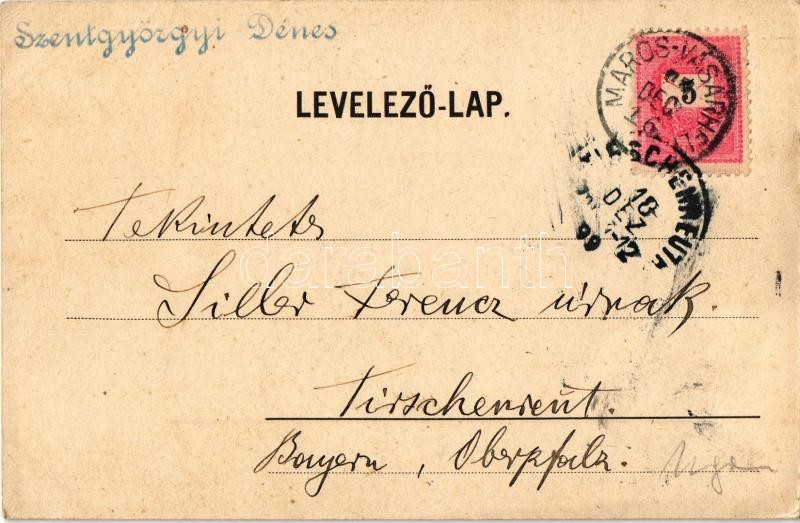 Szentgyörgyi Dénes
LEVELEZŐ-LAP.
MAROS-VÁSÁRHELY
5
TIRSCHENREUTH
18
DEZ
99
Tekintetes
Siller Ferencz úrnak.
darabanth
Tirschenreut.
Bayern, Oberpfalz.